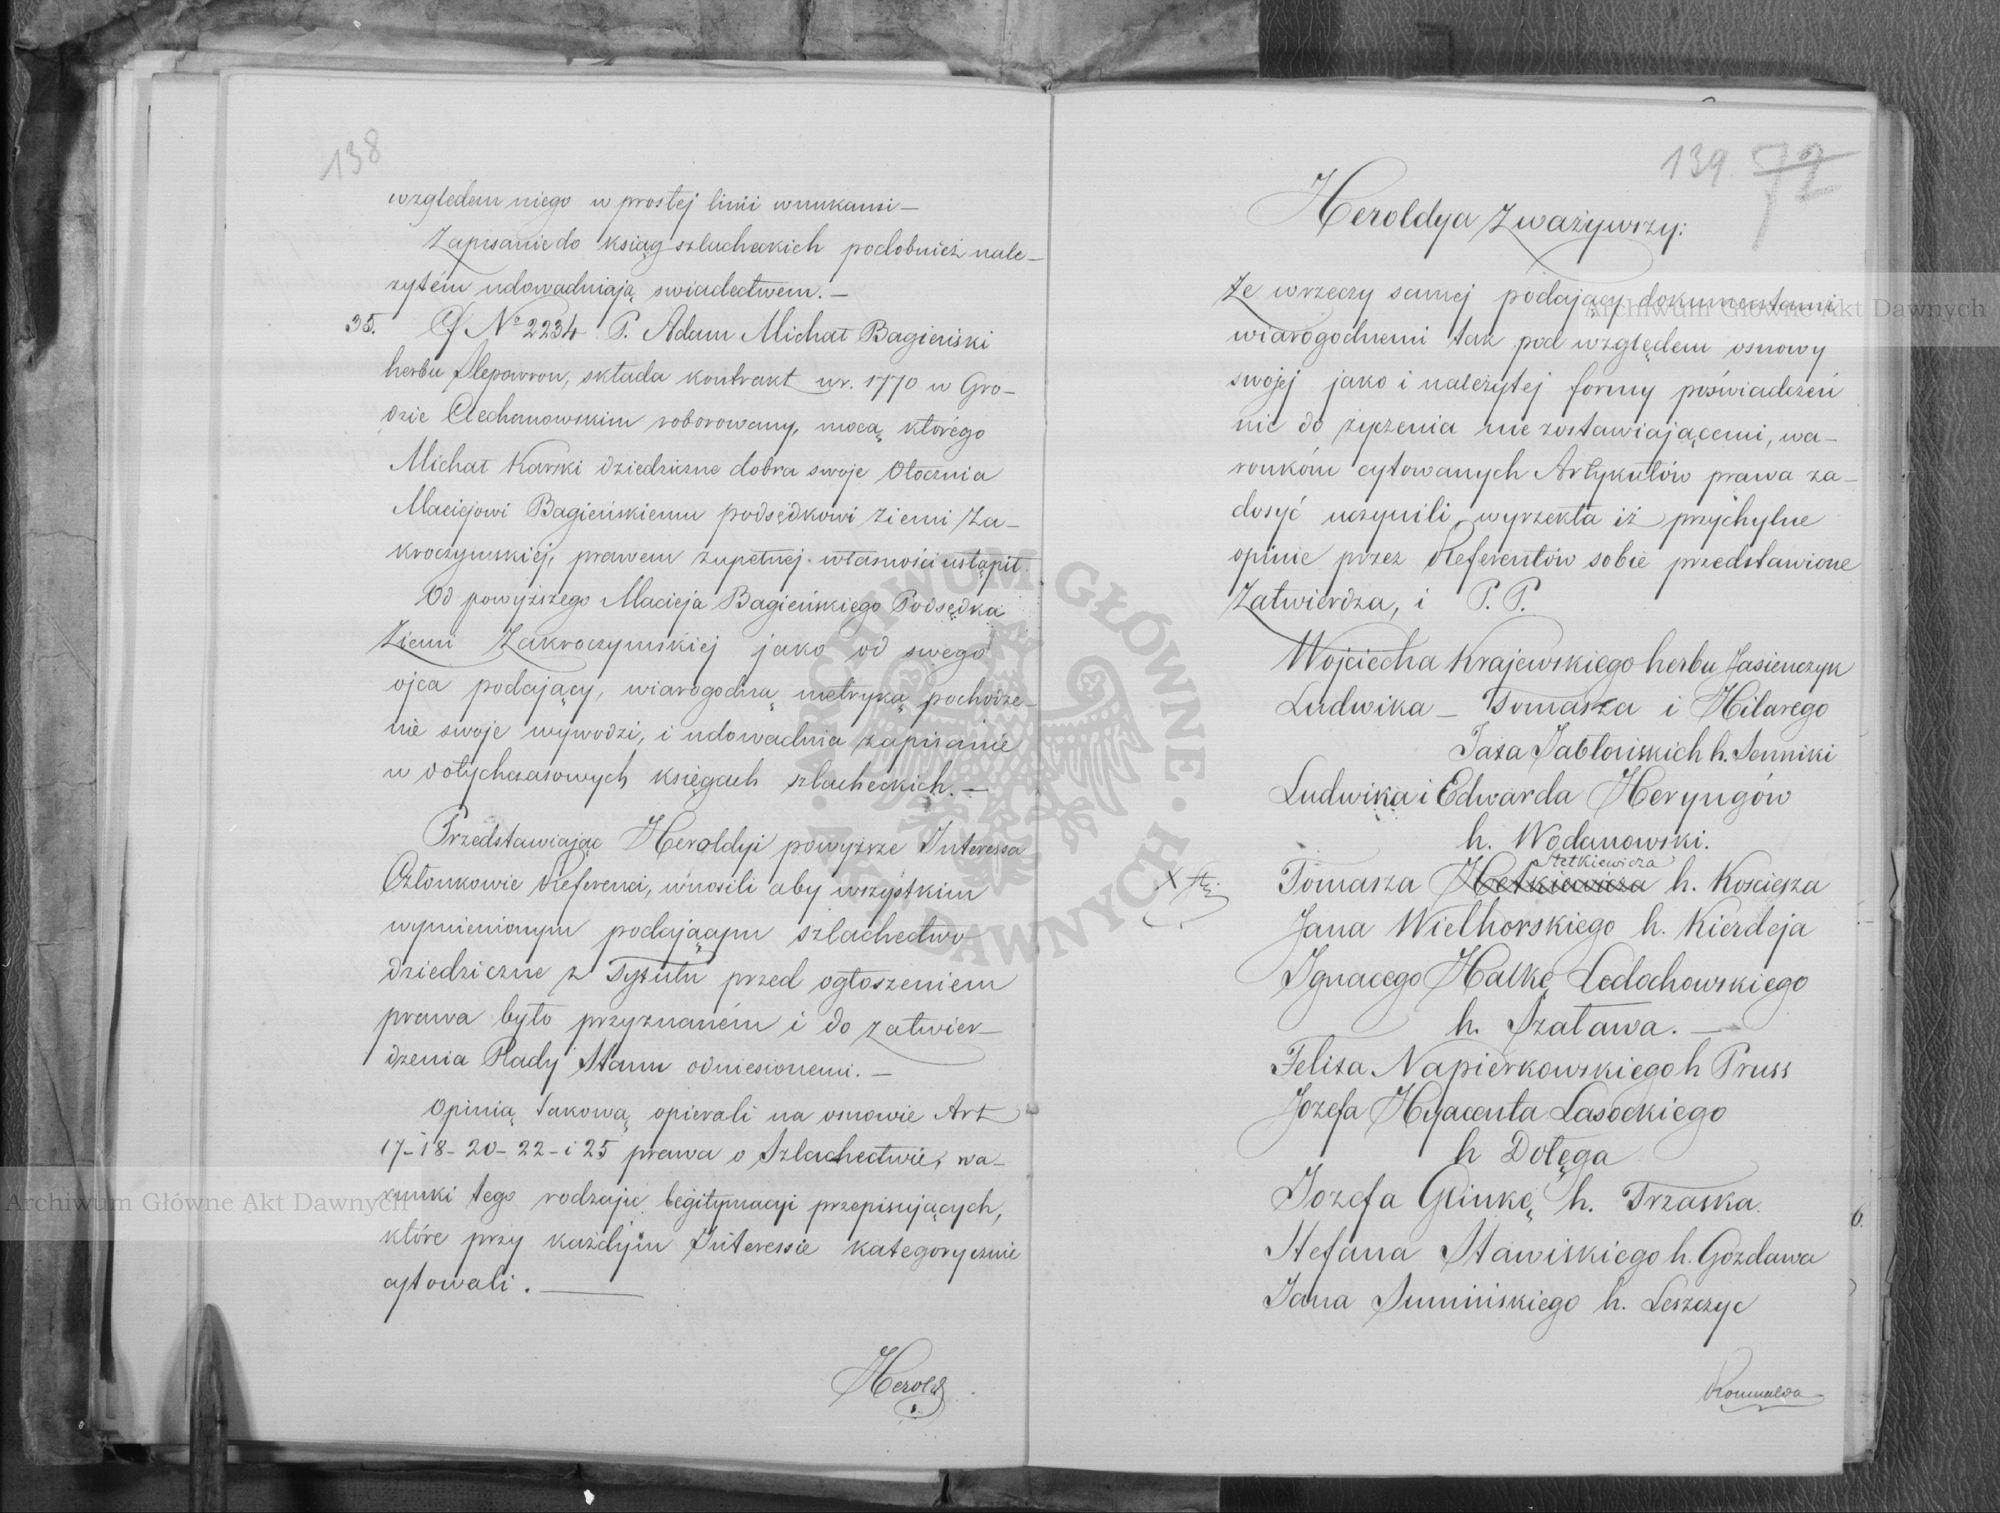 138
względem niego w prostej linii wnukami —
Zapisanie do ksiąg szlacheckich podobnież nale–
żytém udowadniają swiadectwem. —
35. Nº 2234 P. Adam Michał Bagieński
herbu Slepowron, składa kontrakt w r. 1770 w Gro–
dzie Ciechanowskim roborowany, mocą którego
Michał Karski dziedziczne dobra swoje Otocznia
Maciejowi Bagieńskiemu podsędkowi Ziemi Za–
kroczymskiej, prawem zupełnej własności ustąpił.
Od powyższego Macieja Bagieńskiego Podsędka
Ziemi Zakroczymskiej jako od swego
ojca podający, wiarogodną metryką pochodze–
nie swoje wywodzi, i udowadnia zapisanie
w dotychczasowych księgach szlacheckich. —
Przedstawiając Heroldyi powyższe Interessa
Członkowie Referenci, wnosili aby wszystkim
wymienionym podającym szlachectwo
dziedziczne z Tytułu przed ogłoszeniem
prawa było przyznaném i do zatwier–
dzenia Rady Stanu odniesionemi. —
Opinią takową opierali na osnowie Art
17–18–20–22–i 25 prawa o Szlachectwie, wa–
runki tego rodzaju legitymacyi przepisujących,
które przy każdym Interessie kategorycznie
cytowali. —
Herold
139 72
Heroldya Zważywszy:
Że w rzeczy samej podający dokumentami
wiarogodnemi tak pod względem osnowy
swojej jako i należytej formy poświadczeń
nic do życzenia nie zostawiającemi, wa–
runkóm cytowanych Artykułów prawa za–
dosyć uczynili, wyrzekła iż przychylne
opinie przez Referentów sobie przedstawione
Zatwierdza, i P. P.
Wojciecha Krajewskiego herbu Jasieńczyk
Ludwika – Tomasza i Hilarego
Jaxa Jabłońskich h. Jonniki
Ludwika i Edwarda Heryngów
h. Wodanowski.
Stetkiewicza
X
Tomasza Hetkiewicza h. Kosciesza
Jana Wielhorskiego h. Kierdeja
Ignacego Halkę Ledochowskiego
h. Szaława. —
Felixa Napierkowskiego h Pruss
Jozefa Hyacenta Lasockiego
h Dołęga
Jozefa Glinkę h. Trzaska.
Stefana Stawiskiego h. Gozdawa
Jana Sumińskiego h. Leszczyc
Romualda
6.
Archiwum Główne Akt Dawnych
Archiwum Główne Akt Dawnych
ARCHIWUM GŁÓWNE AKT DAWNYCH